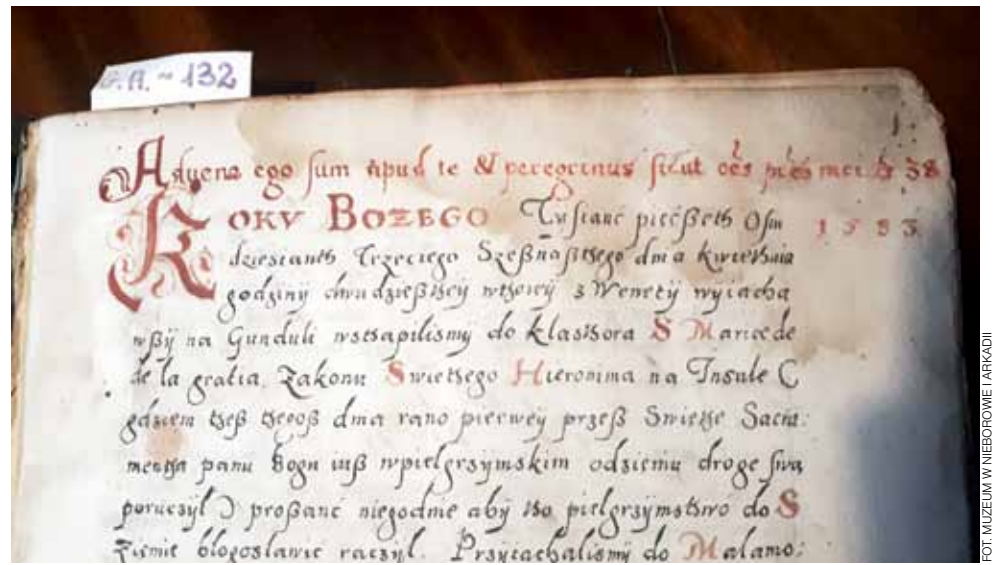 G.A. ~ 132
Aduena ego sum apud te & peregrinus sicut oēs prēs mei ps 38
ROKV BOZEGO Tysianc piećßeth Osm 1583
dziesianth Trzeciego Szesnasthego dnia kwiethnia
godziny dwudziesthey wthorey z Wenetÿ wyiacha
wßÿ na Gunduli wstąpilismy do klasthora S Mariæ de
de la gratia Zakonu Swiethego Hieronima na Insule (
gdziem theß thegoß dnia rano pierwey przeß Swiethe Sacra:
mentha panu Bogu iuß w pielgrzymskim odzieniu droge swą
poruczył ) proßanc niegodnie aby tho pielgrzymsthwo do S
Ziemie blogoslawic raczył. Przyiachalismy do Malamo:
FOT. MUZEUM W NIEBOROWIE I ARKADII